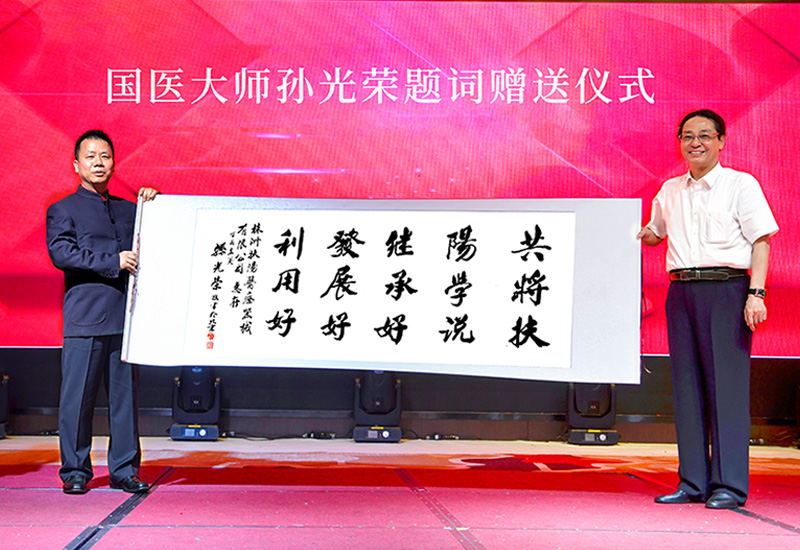 国医大师孙光荣题词赠送仪式
共將扶
陽學说
继承好
發展好
利用好
株洲扶陽醫療器械
有限公司惠存
孫光榮